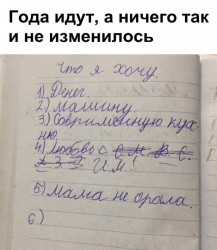 Года идут, а ничего так
и не изменилось
Что я хочу.
1) Денег.
2) Машину.
3) Современную кух-
ню.
4) Любовь с
И.М.
5) Мама не орала.
6)